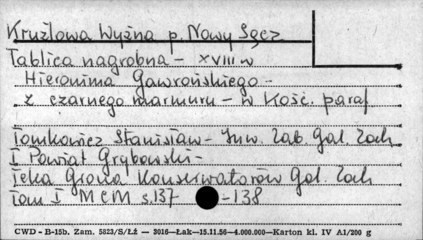 Krużlowa Wyżna p. Nowy Sącz
Tablica nagrobna – XVIII w
Hieronima Gawrońskiego –
z czarnego marmuru – w Kość. paraf
Tomkowicz Stanisław – Inw. Zab. Gal. Zach
I Powiat Grybowski –
Teka Grona Konserwatorów Gal. Zach
Tom I MCM s. 137 – 138
CWD - B-15b. Zam. 5823/S/Łź — 3016—Łak—15.11.56—4.000.000—Karton kl. IV A1/200 g